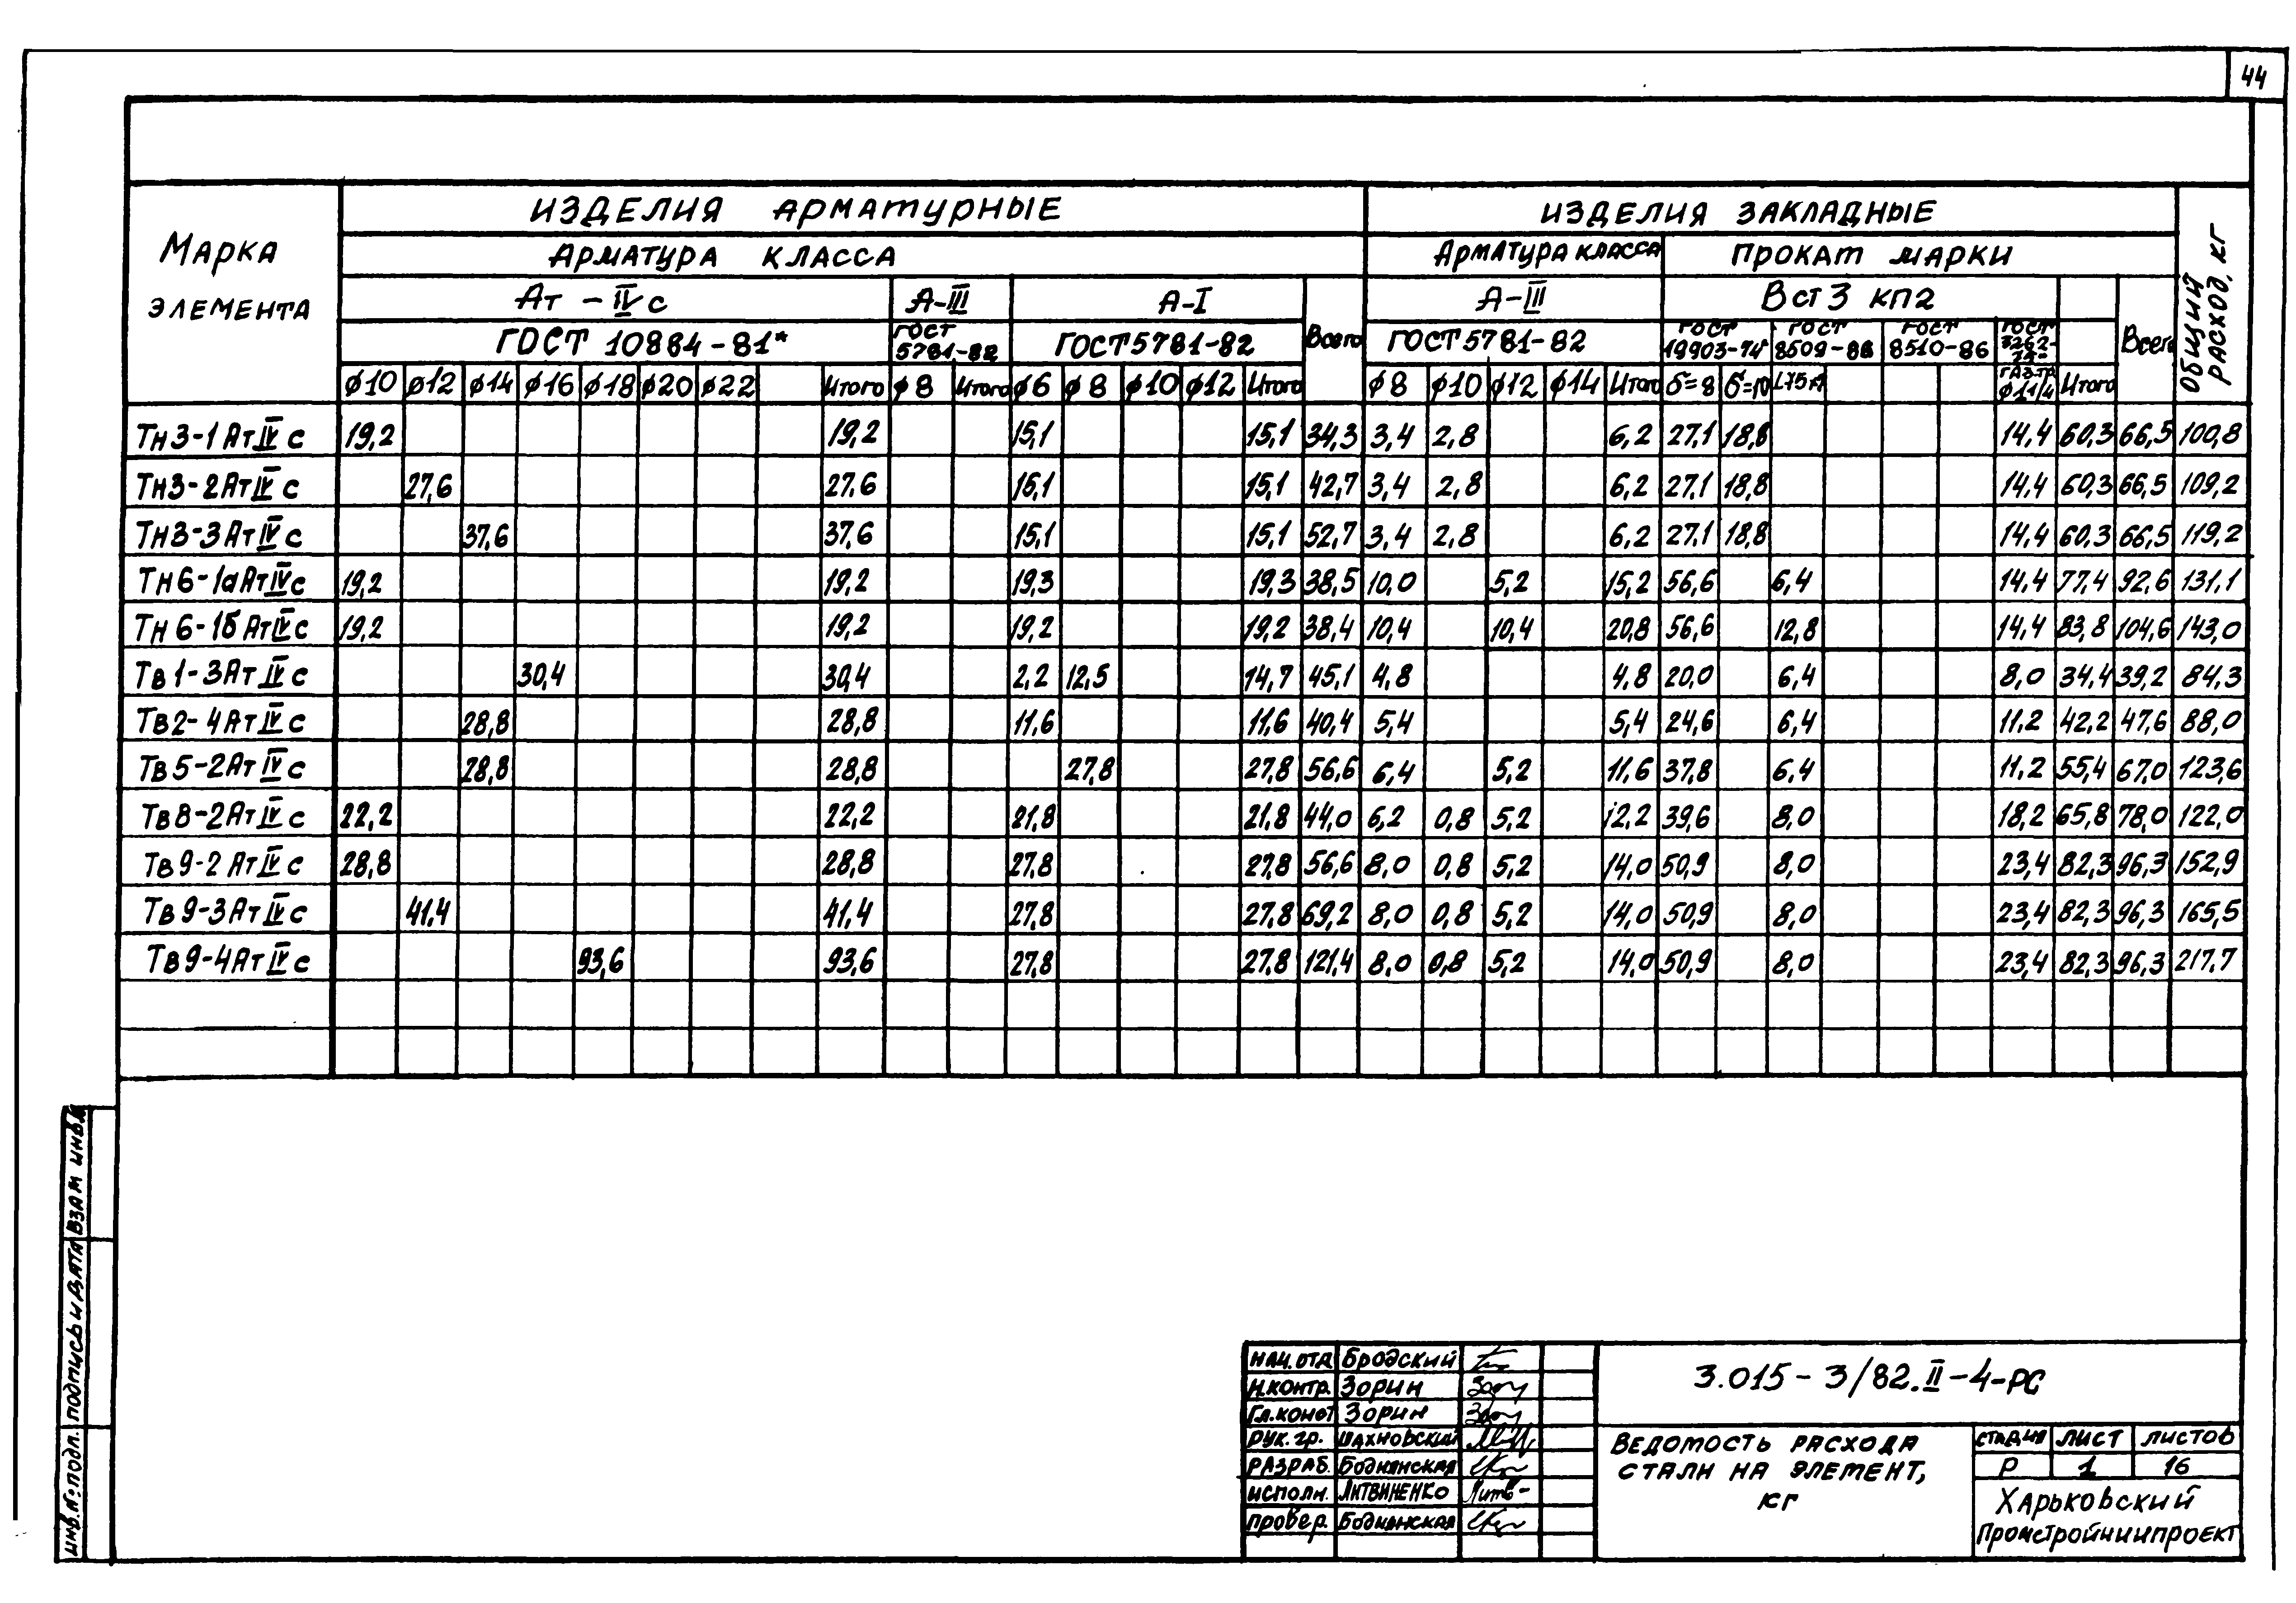 44
Марка элемента
Изделия арматурные
Изделия закладные
Общий расход, кг
Арматура класса
Арматура класса
Прокат марки
Ат-IVс
А-III
А-I
Всего
А-III
Вст3 кп2
Всего
ГОСТ 10884-81*
ГОСТ 5781-82
ГОСТ 5781-82
ГОСТ 5781-82
ГОСТ 19903-74*
ГОСТ 8509-86
ГОСТ 8510-86
ГОСТ 3262-75*
ф10 ф12 ф14 ф16 ф18 ф20 ф22 Итого ф8 Итого ф6 ф8 ф10 ф12 Итого ф8 ф10 ф12 ф14 Итого б=8 б=10 газ.тр. ф1 1/4 Итого
Тн3-1АтIVс 19,2 19,2 15,1 15,1 34,3 3,4 2,8 6,2 27,1 18,8 14,4 60,3 66,5 100,8
Тн3-2АтIVс 27,6 27,6 15,1 15,1 42,7 3,4 2,8 6,2 27,1 18,8 14,4 60,3 66,5 109,2
Тн3-3АтIVс 37,6 37,6 15,1 15,1 52,7 3,4 2,8 6,2 27,1 18,8 14,4 60,3 66,5 119,2
Тн6-1аАтIVс 19,2 19,2 19,3 19,3 38,5 10,0 5,2 15,2 56,6 6,4 14,4 77,4 92,6 131,1
Тн6-1бАтIVс 19,2 19,2 19,2 19,2 38,4 10,4 10,4 20,8 56,6 12,8 14,4 83,8 104,6 143,0
Тв1-3АтIVс 30,4 30,4 2,2 12,5 14,7 45,1 4,8 4,8 20,0 6,4 8,0 34,4 39,2 84,3
Тв2-4АтIVс 28,8 28,8 11,6 11,6 40,4 5,4 5,4 24,6 6,4 11,2 42,2 47,6 88,0
Тв5-2АтIVс 28,8 28,8 27,8 27,8 56,6 6,4 5,2 11,6 37,8 6,4 11,2 55,4 67,0 123,6
Тв8-2АтIVс 22,2 22,2 21,8 21,8 44,0 6,2 0,8 5,2 12,2 39,6 8,0 18,2 65,8 78,0 122,0
Тв9-2АтIVс 28,8 28,8 27,8 27,8 56,6 8,0 0,8 5,2 14,0 50,9 8,0 23,4 82,3 96,3 152,9
Тв9-3АтIVс 41,4 41,4 27,8 27,8 69,2 8,0 0,8 5,2 14,0 50,9 8,0 23,4 82,3 96,3 165,5
Тв9-4АтIVс 93,6 93,6 27,8 27,8 121,4 8,0 0,8 5,2 14,0 50,9 8,0 23,4 82,3 96,3 217,7
инв.№ подл. подпись и дата взам инв.№
нач.отд Бродский
н.контр. Зорин
гл.конст Зорин
рук.гр. Шахновский
разраб. Боднянская
исполн. Литвиненко
провер. Боднянская
3.015-3/82.II-4-РС
Ведомость расхода
стали на элемент,
кг
стадия лист листов
Р 1 16
Харьковский
Промстройниипроект